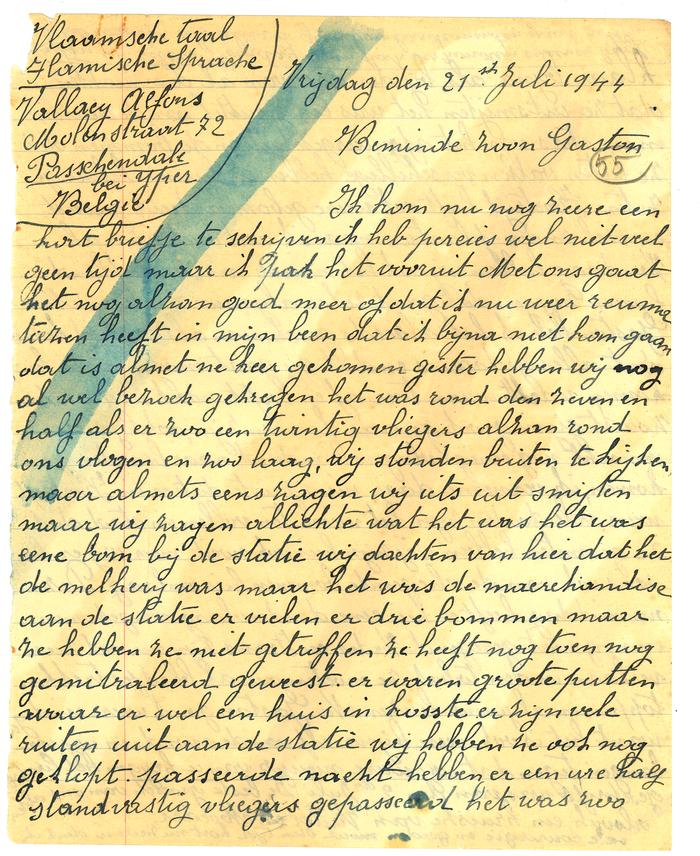 Vlaamsche taal
Flamische Sprache
Vallaey Alfons
Molenstraat 72
Passchendale
bei yper
België
Vrijdag den 21st Juli 1944
Beminde zoon Gaston
55
Ik kom nu nog zeere een
kort briefje te schrijven ik heb percies wel niet veel
geen tijd maar ik pak het vooruit Met ons gaat
het nog alzan goed meer of dat ik nu weer reuma
tiezen heeft in mijn been dat ik bijna niet kan gaan
dat is almet ne keer gekomen gister hebben wij nog
al wel bezoek gekregen het was rond den zeven en
half als er zoo een twintig vliegers alzan rond
ons vlogen en zoo laag, wij stonden buiten te kijken
maar almets eens zagen wij iets uit smijten
maar wij zagen allichte wat het was het was
eene bom bij de statie wij dachten van hier dat het
de melkerij was maar het was de maerchandise
aan de statie er vielen er drie bommen maar
ze hebben ze niet getroffen ze heeft nog toen nog
gemitraleerd geweest. er waren groote putten
waar er wel een huis in kosste er zijn vele
ruiten uit aan de statie wij hebben ze ook nog
geklopt. passeerde nacht hebben er een ure half
standvastig vliegers gepasseerd het was zoo